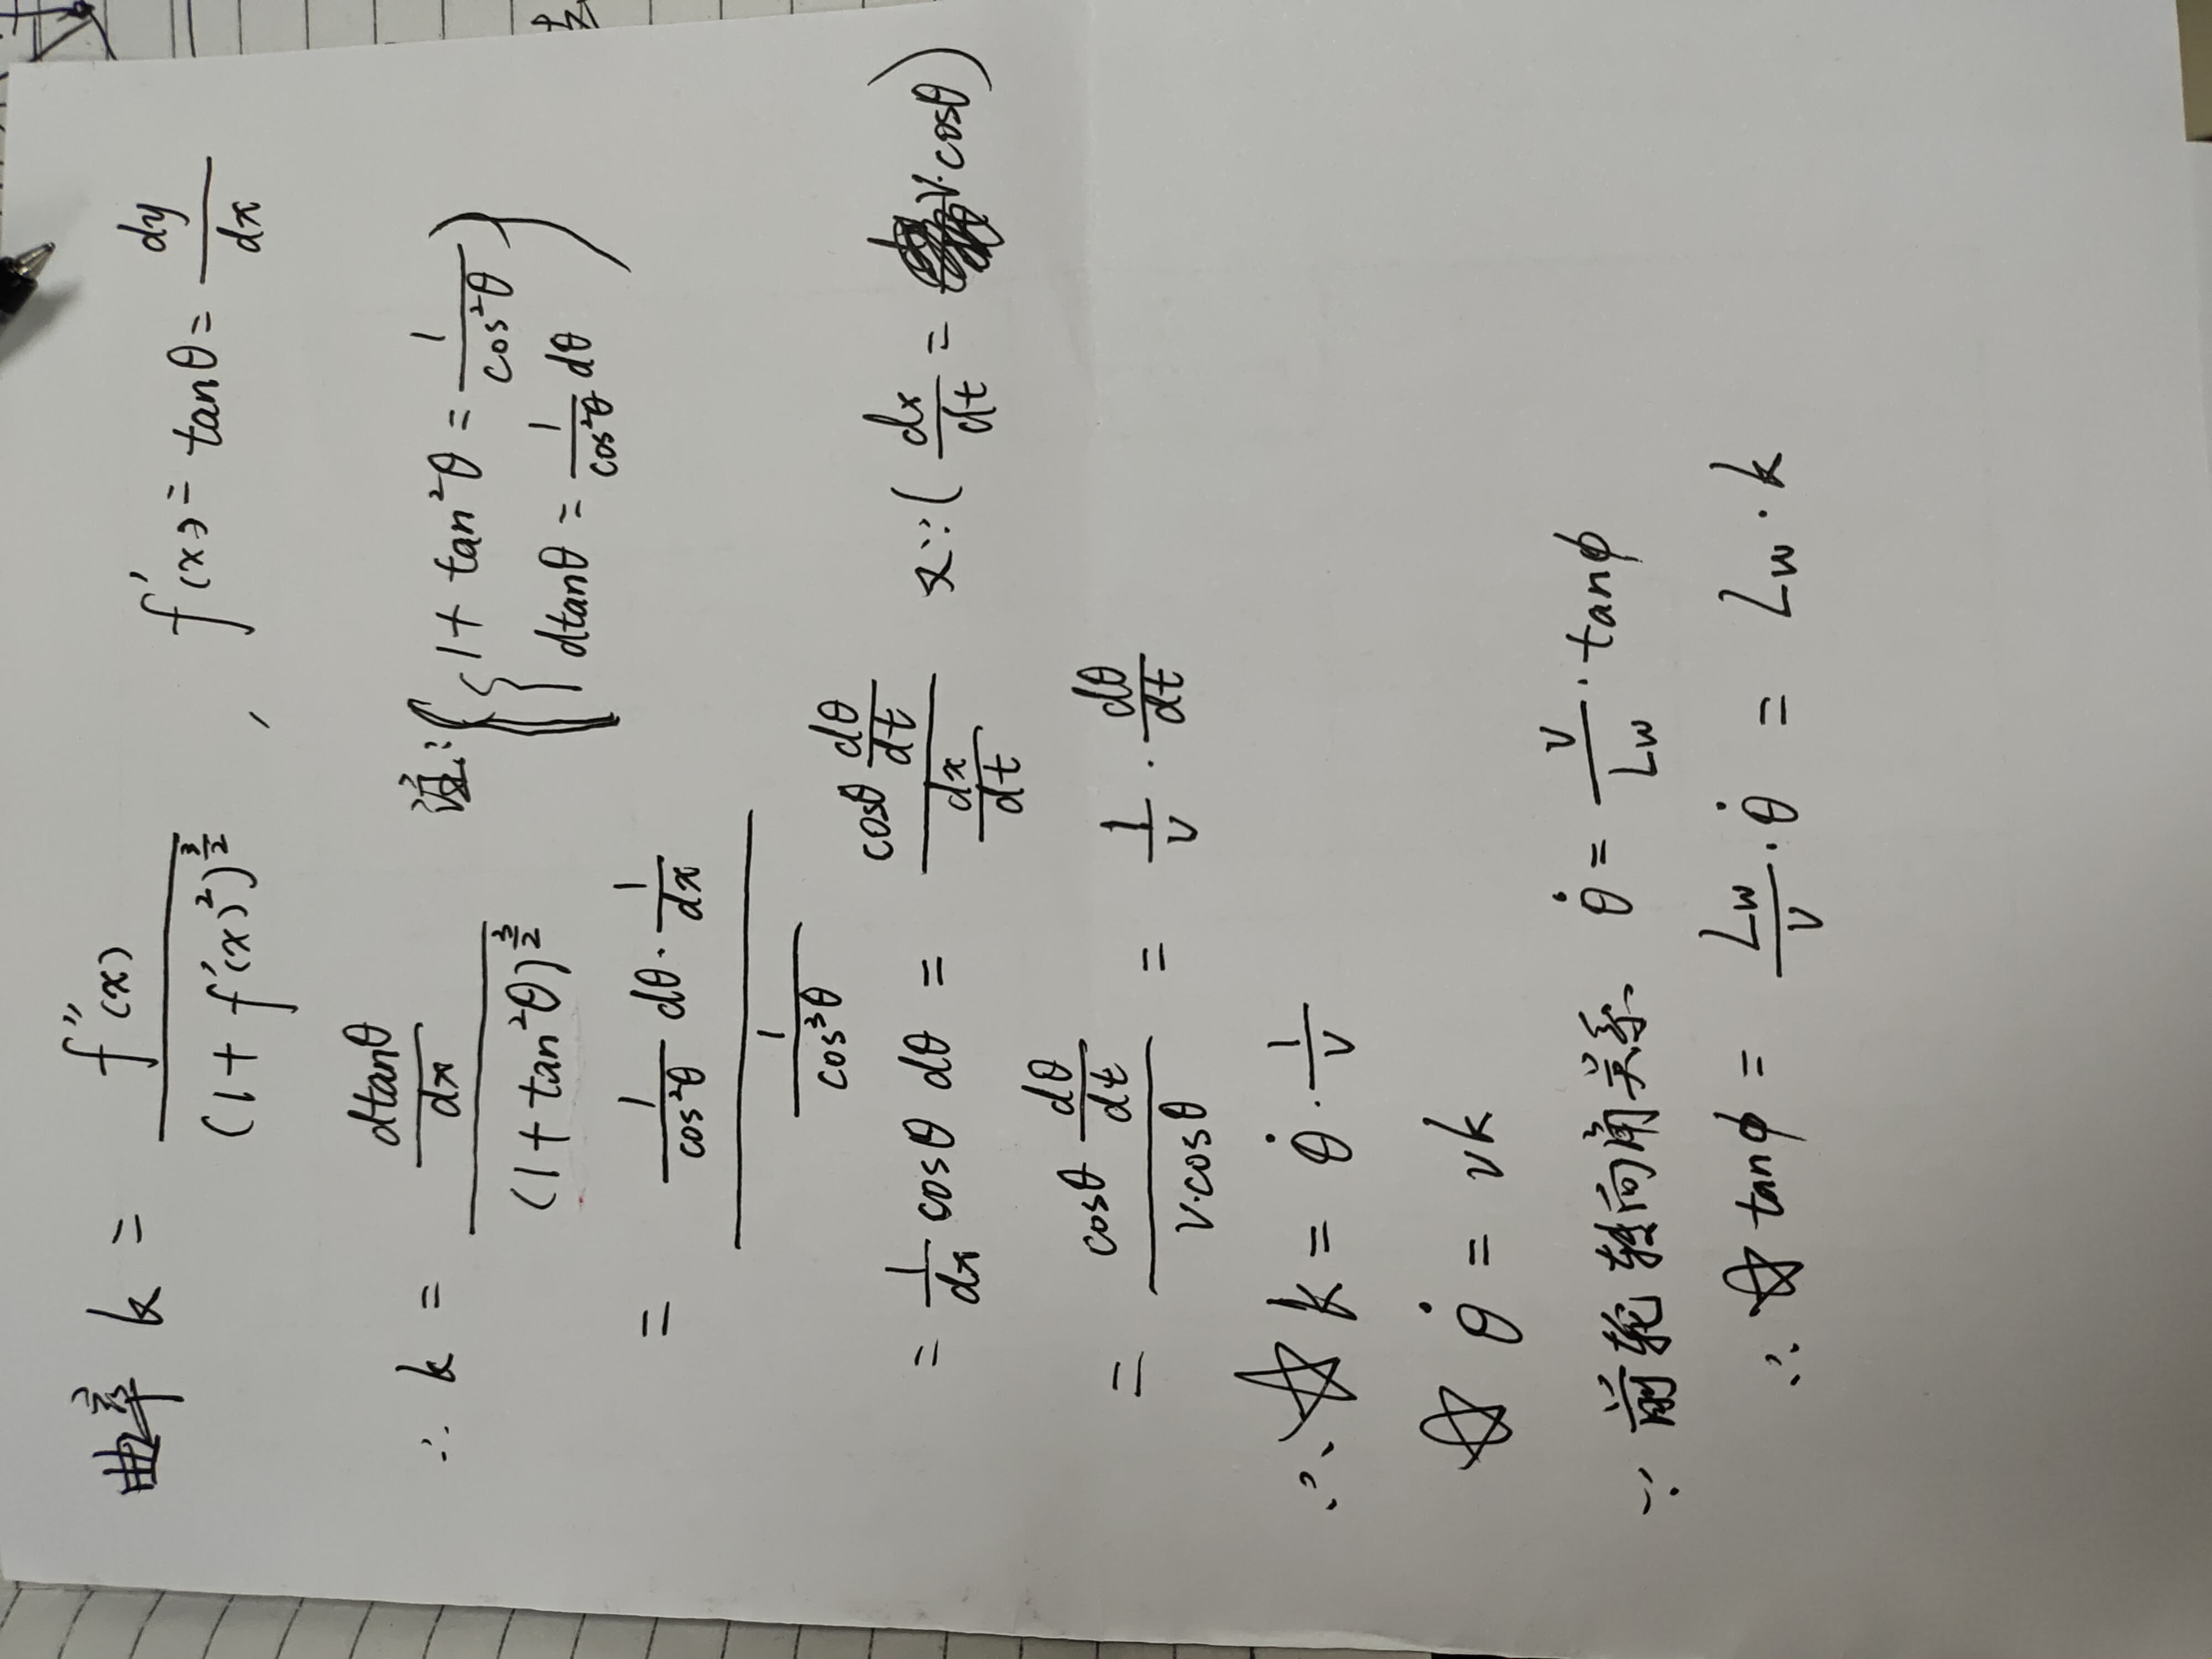 曲率 k = f''(x) / (1 + f'(x)²)^(3/2) , f'(x) = tanθ = dy/dx
∴ k = (dtanθ/dx) / (1 + tan²θ)^(3/2) 注:({1 + tan²θ = 1/cos²θ
dtanθ = 1/cos²θ dθ)
= (1/cos²θ dθ · 1/dx) / (1/cos³θ)
= 1/dx cosθ dθ = (cosθ dθ/dt) / (dx/dt) 又∵ (dx/dt = v·cosθ)
= (cosθ dθ/dt) / (v·cosθ) = 1/v · dθ/dt
∴ ☆ k = θ̇ · 1/v
☆ θ̇ = vk
∵ 前轮转向角关系 θ̇ = v/Lw · tanϕ
∴ ☆ tanϕ = Lw/v · θ̇ = Lw · k